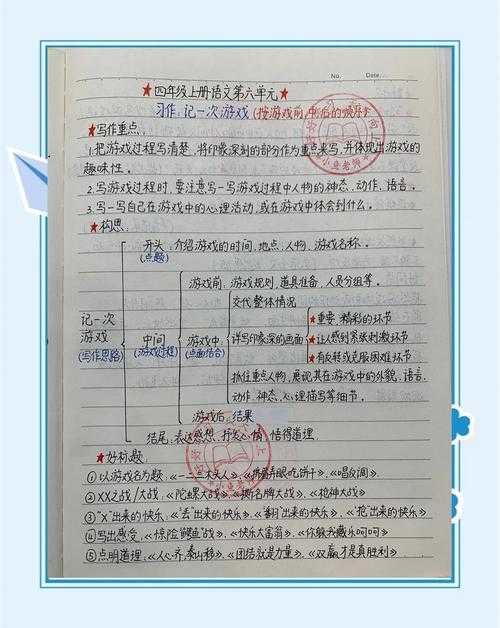 No.
Date.
★四年级上册语文第六单元★
习作:记一次游戏(按游戏前、中、后的顺序)
★写作重点:
1.把游戏过程写清楚,将印象深刻的部分作为重点来写,并体现出游戏的
趣味性。
2.写游戏过程时,要注意写一写游戏过程中人物的神态、动作、语言。
3.写一写自己在游戏中的心理活动,或在游戏中体会到什么。
★构思:
记一次
游戏
(写作思路)
开头:介绍游戏的时间、地点、人物、游戏名称。
(点题)
中间
(游戏过程)
游戏前:游戏规则,道具准备,人员分组等。
游戏中
(点面结合)
交代整体情况
详写印象深的画面
★重要、精彩的环节
★让人感到紧张刺激环节
★有反转或克服困难环节
抓住重点人物,展现其在游戏中的外貌、语言、
动作、神态、心理描写等细节。
游戏后:结果
结尾:表达感想,抒发心情,悟得道理
★好标题
①以游戏名为题,《一二三木头人》、《挤眉弄眼吃饼干》、《唱反调》
②XX之战/大战,《陀螺大战》、《撕名牌大战》、《抢神大战》
③"X"出来的快乐,《"丢"出来的快乐》、《"翻"出来的快乐》、《"抢"出来的快乐》
④写出感受,《惊险鳄鱼战》、《快乐大富翁》、《你躲我藏乐呵呵》
⑤点明道理,《人心齐,泰山移》、《团结就是力量》、《双赢才是真胜利》